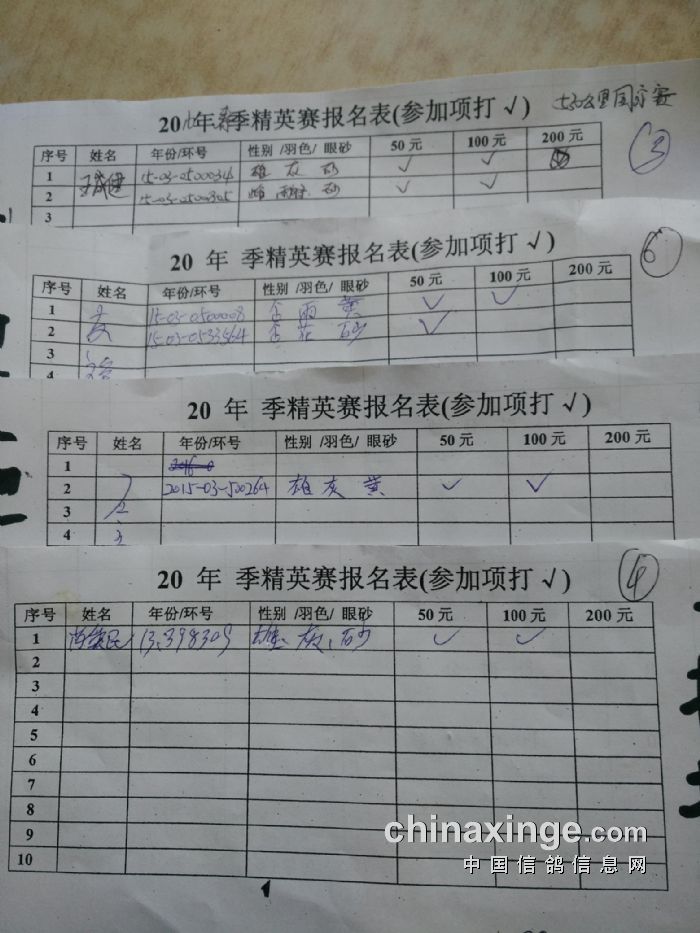 20 年 季精英赛报名表(参加项打 √)
③
序号 姓名 年份/环号 性别 /羽色/ 眼砂 50 元 100 元 200 元
1 15-03-0500034 雄 灰 砂 √ √
2 15-03-0500305 砂 √ √
3
20 年 季精英赛报名表(参加项打 √)
⑥
序号 姓名 年份/环号 性别 /羽色/ 眼砂 50 元 100 元 200 元
1 15-03-0500008 雨 黄 √ √
2 15-03-0533564 花 砂 √
3
4
20 年 季精英赛报名表(参加项打 √)
序号 姓名 年份/环号 性别 /羽色/ 眼砂 50 元 100 元 200 元
1
2 2015-03-500264 雄 灰 黄 √ √
3
4
20 年 季精英赛报名表(参加项打 √)
④
序号 姓名 年份/环号 性别 /羽色/ 眼砂 50 元 100 元 200 元
1 13.398309 雄. 灰. 砂 √ √
2
3
4
5
6
7
8
9
10
chinaxinge.com
中国信鸽信息网